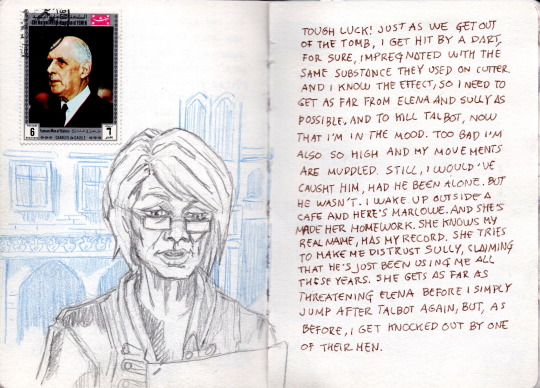 6
CHARLES de GAULLE
TOUGH LUCK! JUST AS WE GET OUT
OF THE TOMB, I GET HIT BY A DART,
FOR SURE, IMPREGNATED WITH THE
SAME SUBSTANCE THEY USED ON CUTTER.
AND I KNOW THE EFFECT, SO I NEED TO
GET AS FAR FROM ELENA AND SULLY AS
POSSIBLE. AND TO KILL TALBOT, NOW
THAT I'M IN THE MOOD. TOO BAD I'M
ALSO SO HIGH AND MY MOVEMENTS
ARE MUDDLED. STILL, I WOULD'VE
CAUGHT HIM, HAD HE BEEN ALONE. BUT
HE WASN'T. I WAKE UP OUTSIDE A
CAFE AND HERE'S MARLOWE. AND SHE'S
MADE HER HOMEWORK. SHE KNOWS MY
REAL NAME, HAS MY RECORD. SHE TRIES
TO MAKE ME DISTRUST SULLY, CLAIMING
THAT HE'S JUST BEEN USING ME ALL
THESE YEARS. SHE GETS AS FAR AS
THREATENING ELENA BEFORE I SIMPLY
JUMP AFTER TALBOT AGAIN, BUT, AS
BEFORE, I GET KNOCKED OUT BY ONE
OF THEIR MEN.